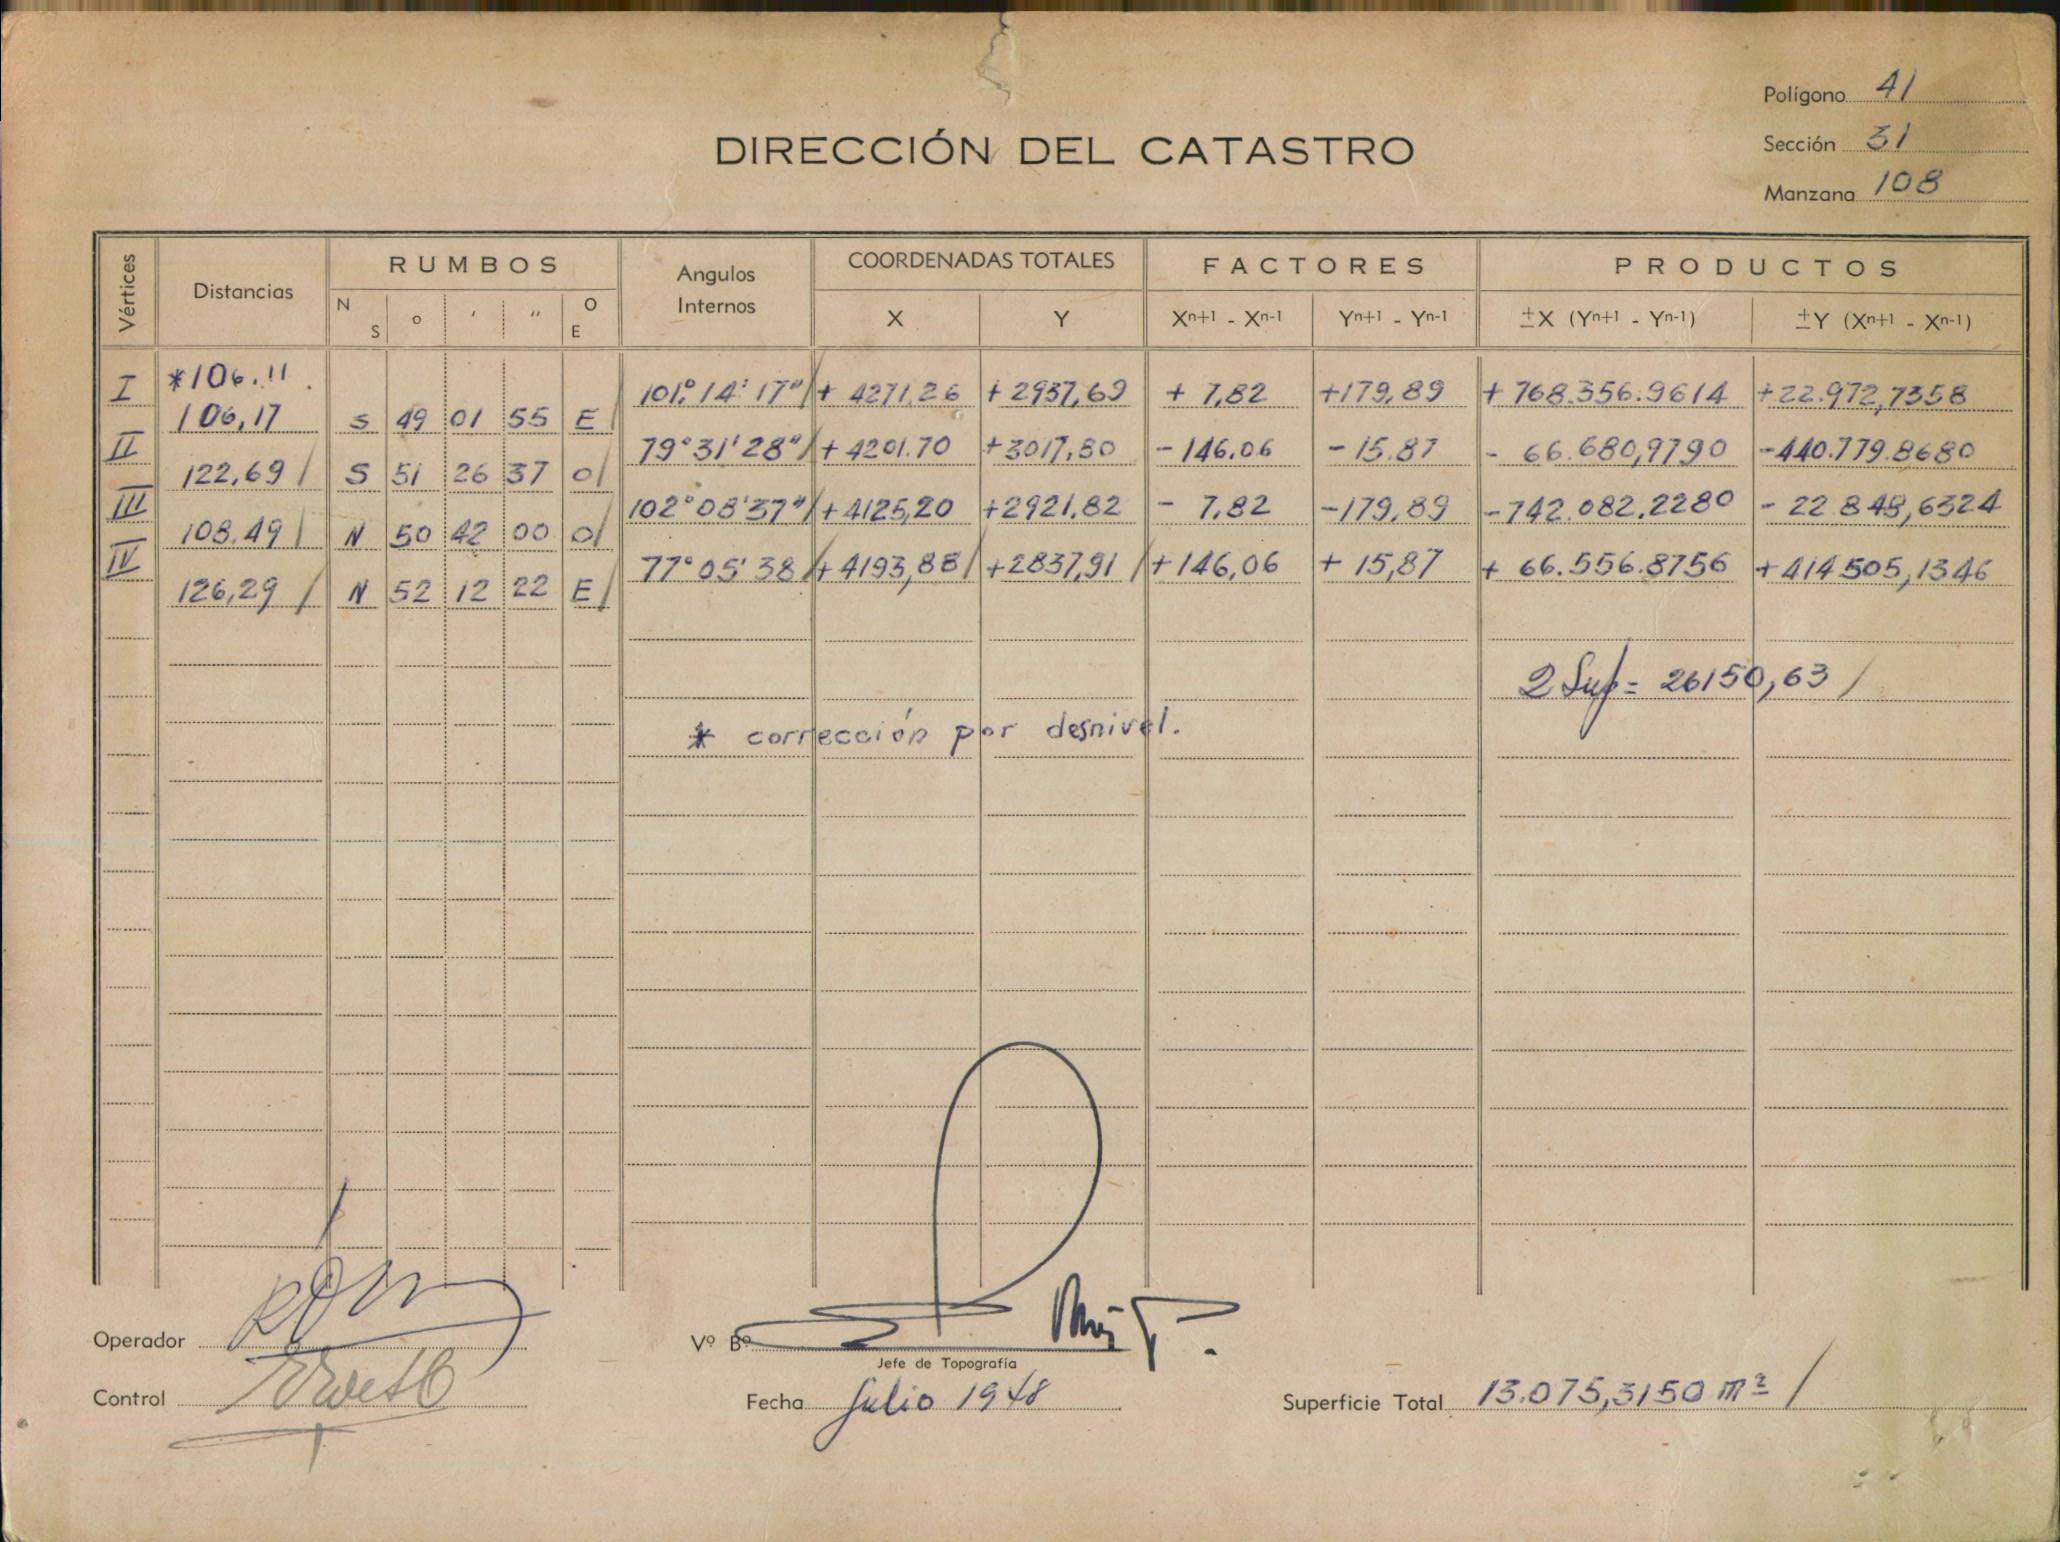 Polígono 41
DIRECCIÓN DEL CATASTRO
Sección 31
Manzana 108
Vértices Distancias RUMBOS Angulos Internos COORDENADAS TOTALES FACTORES PRODUCTOS
N S ° ' " O E X Y Xn+1 - Xn-1 Yn+1 - Yn-1 ±X (Yn+1 - Yn-1) ±Y (Xn+1 - Xn-1)
I *106.11 101° 14' 17" + 4271.26 + 2937,69 + 7,82 +179,89 + 768.356.9614 +22.972,7358
106,17 S 49 01 55 E
II 79° 31' 28" + 4201.70 +3017,80 -146.06 - 15.87 - 66.680,9790 -440.779.8680
122,69 S 51 26 37 O
III 102° 08' 37" +4125,20 +2921.82 - 7,82 -179,89 -742.082.2280 - 22.848,6324
108.49 N 50 42 00 O
IV 77° 05' 38 + 4193,88 +2837,91 +146,06 + 15,87 + 66.556.8756 +414.505,1346
126,29 N 52 12 22 E
2 Sup = 26150,63
* corrección por desnivel.
Operador
Vº Bº
Jefe de Topografía
Control
Fecha Julio 1948
Superficie Total 13.075,3150 m2